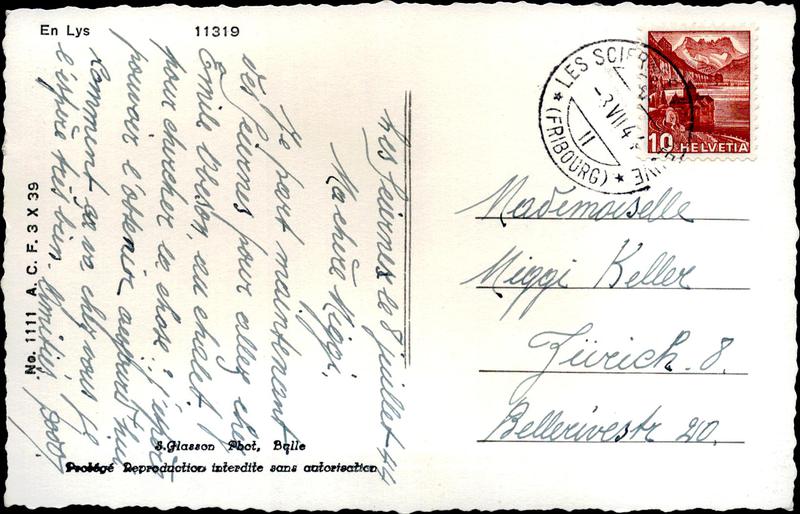 En Lys 11319
Les Sciernes le 8 juillet 44
Ma chère Miggi,
Je part maintenant
des Sciernes pour aller chez
Emile au chalet
pour chercher la chose; j'espère
pouvoir l'obtenir aujourd'hui
Comment ça va chez vous? Je
l'espère très bien. Amitiés,
No. 1111 A. C. F. 3 X 39
S. Glasson Phot, Bulle
Protégé Reproduction interdite sans autorisation
LES SCIER
-8 VII 4
II
(FRIBOURG)
10 HELVETIA
Mademoiselle
Miggi Keller
Zürich. 8.
Bellerivestr 20.